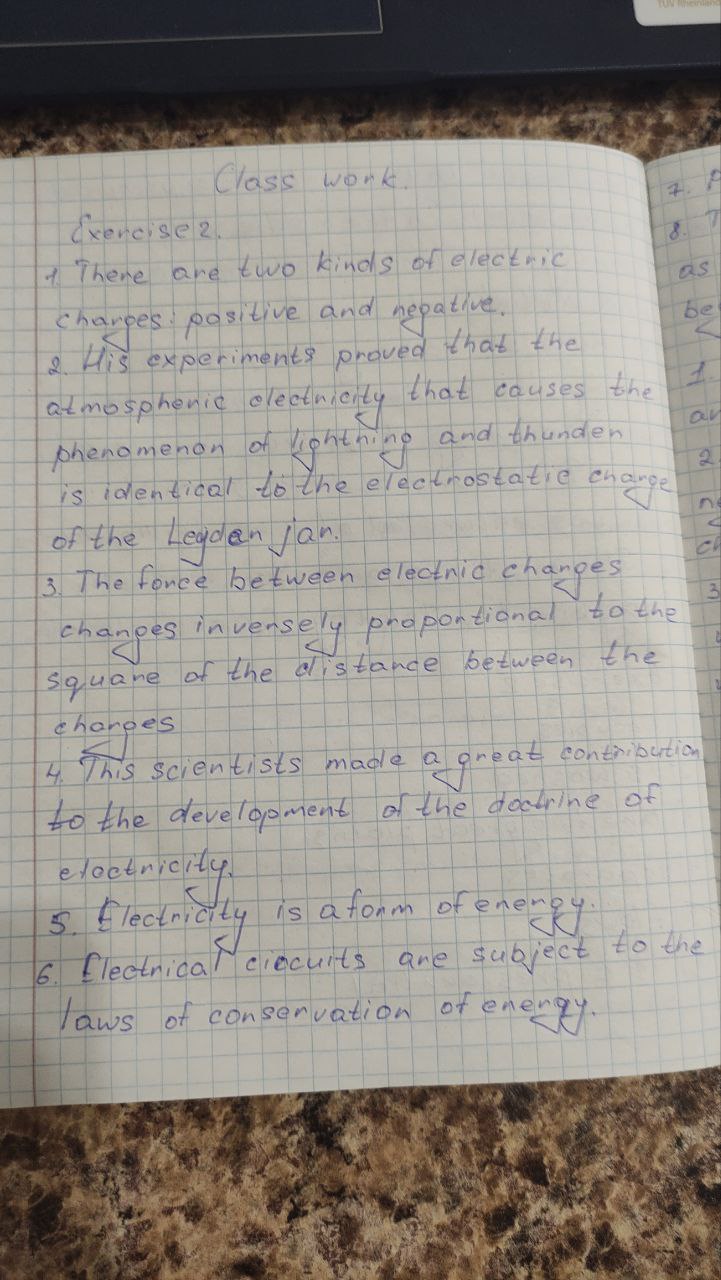 TÜV Rheinland
Class work.
Exercise 2.
1. There are two kinds of electric
charges: positive and negative.
2. His experiments proved that the
atmospheric electricity that causes the
phenomenon of lightning and thunder
is identical to the electrostatic charge
of the Leyden jar.
3. The force between electric charges
changes inversely proportional to the
square of the distance between the
charges
4. This scientists made a great contribution
to the development of the doctrine of
electricity.
5. Electricity is a form of energy.
6. Electrical circuits are subject to the
laws of conservation of energy.
7.
8. T
as
be
1.
2
3